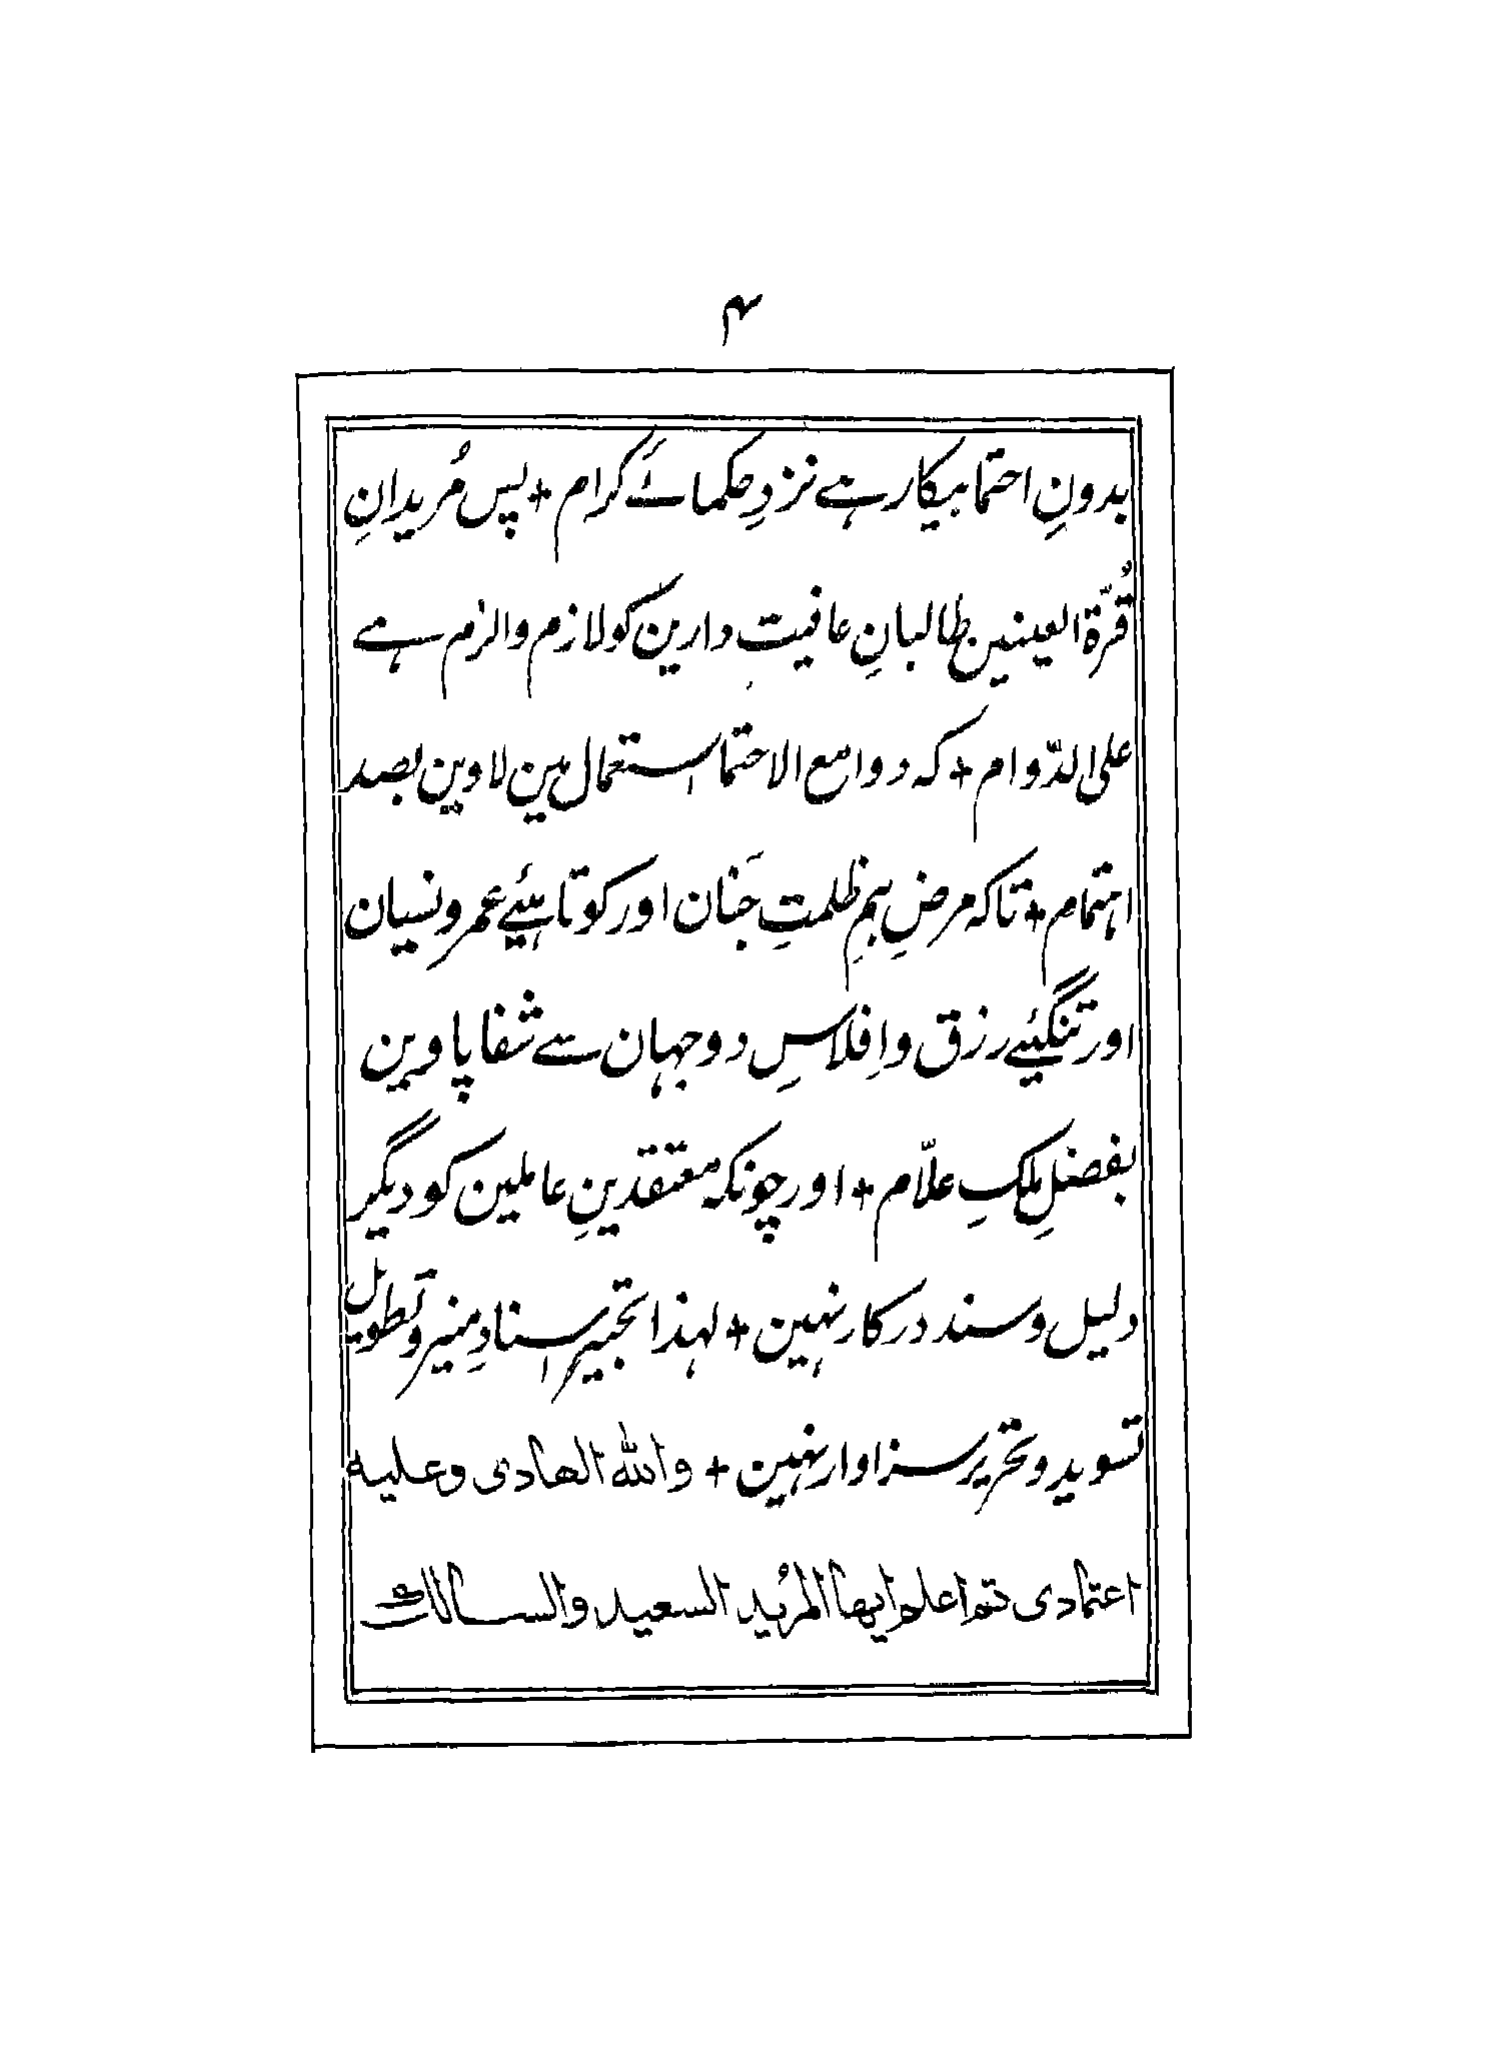 ۴
بدونِ احتما بیکار ہے نزدِ حکمائے کرام + پس مُریدانِ
قُرّۃ العینین طالبانِ عافیت دارین کو لازم والزم ہے
علی الدّوام + کہ دوا مع الاحتما استعمال مین لاوین بصد
اہتمام + تاکہ مرضِ ہمِ ظلمتِ جَنان اور کوتاہیئے عمر و نسیان
اور تنگیئے رزق و اِفلاسِ دو جہان سے شفا پاوین
بفضلِ ملکِ علّام + اور چونکہ معتقدینِ عاملین کو دیگر
دلیل و سند درکار نہین + لہذا تحبیر اسنادِ منیر و تطویل
تسوید و تحریر سزاوار نہین + والله الهادی وعلیه
اعتمادی ثم اعلم ایها المرُید السعید والسالك